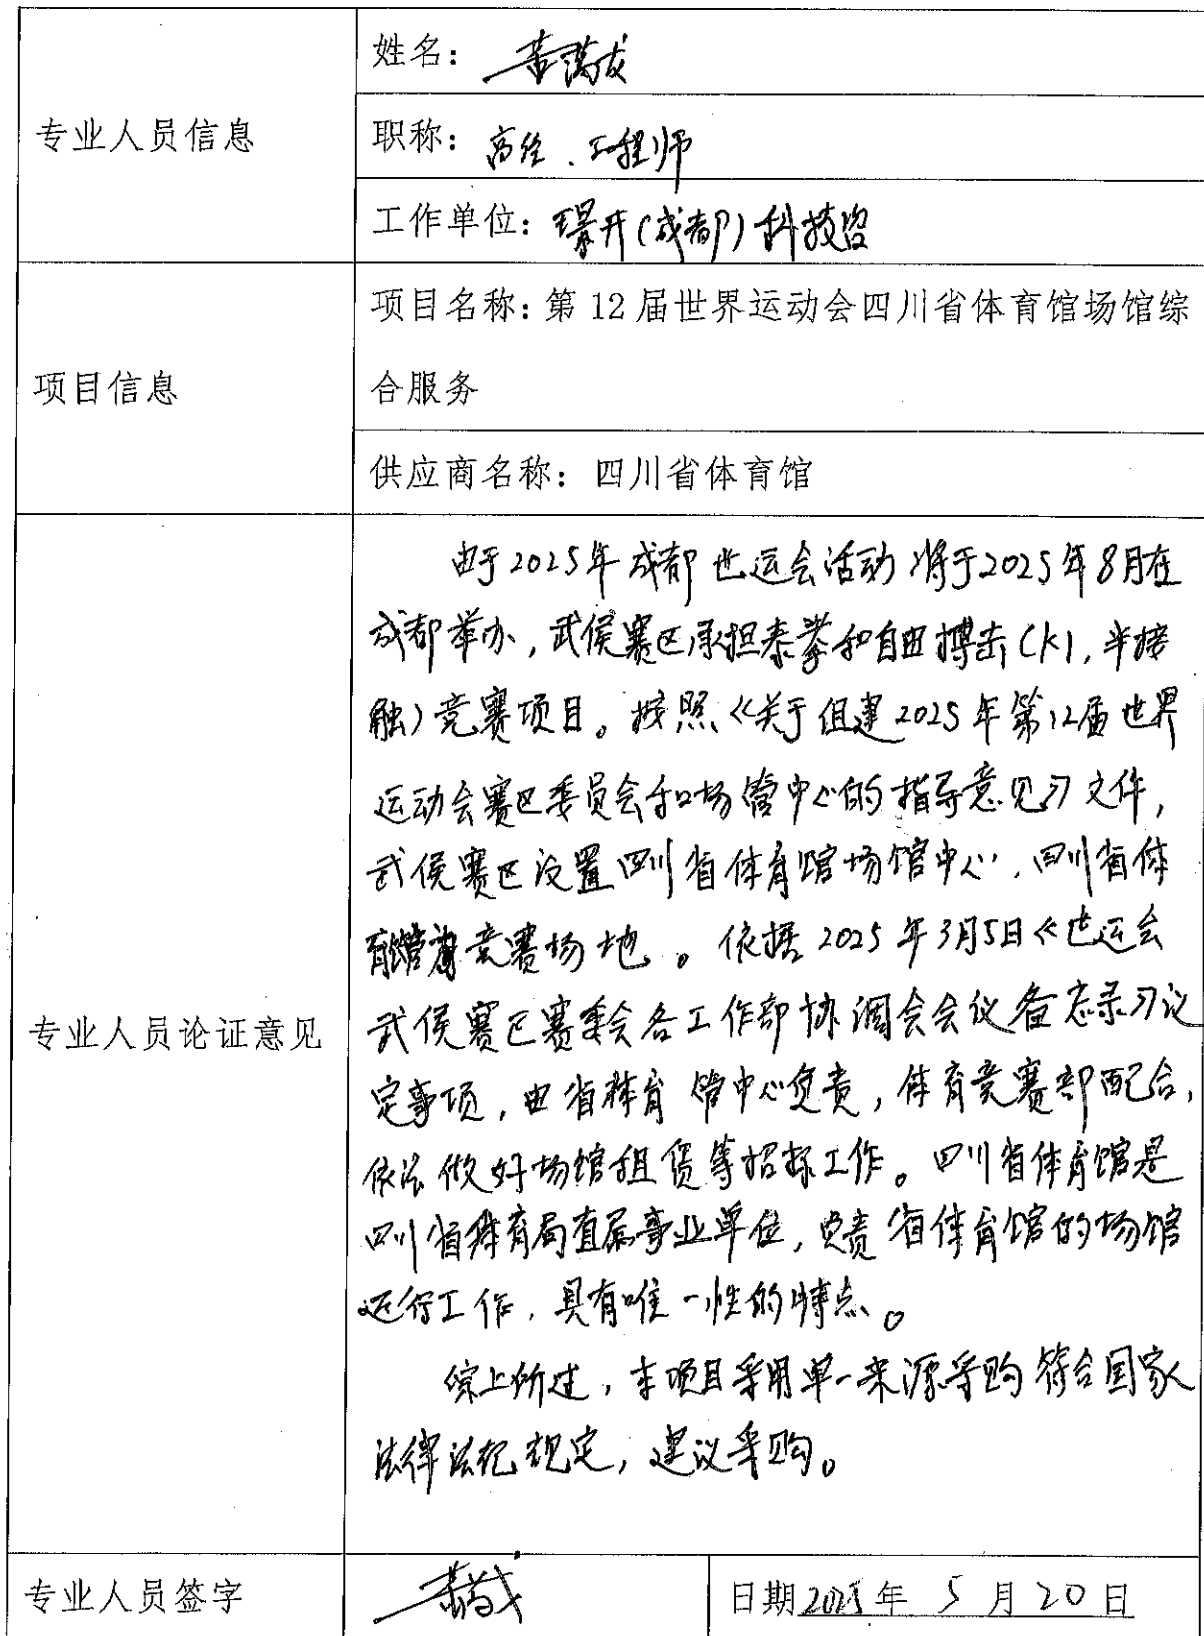 专业人员信息
姓名：
职称：高经、工程师
工作单位：璟开(成都)科技咨
项目信息
项目名称：第 12 届世界运动会四川省体育馆场馆综
合服务
供应商名称：四川省体育馆
专业人员论证意见
由于2025年成都世运会活动将于2025年8月在
成都举办，武侯赛区承担泰拳和自由搏击(K1,半接
触)竞赛项目。按照《关于组建2025年第12届世界
运动会赛区委员会和场馆中心的指导意见》文件，
武侯赛区设置四川省体育馆场馆中心，四川省体
育馆为竞赛场地。依据2025年3月5日《世运会
武侯赛区赛委会各工作部协调会会议备忘录》议
定事项，由省体育馆中心负责，体育竞赛部配合，
依法做好场馆租赁等招标工作。四川省体育馆是
四川省体育局直属事业单位，负责省体育馆的场馆
运行工作，具有唯一性的特点。
综上所述，本项目采用单一来源采购符合国家
法律法规规定，建议采购。
专业人员签字
日期2025年 5 月 20 日